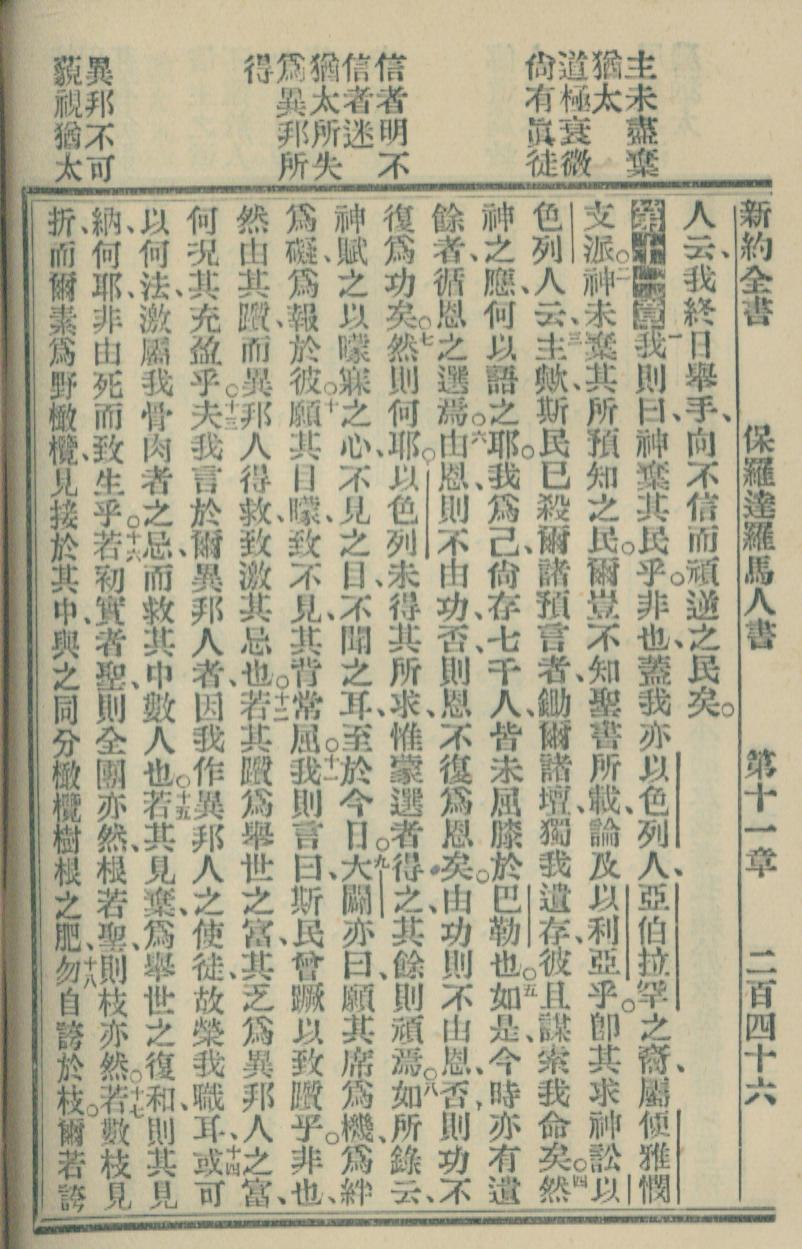 新約全書　保羅達羅馬人書　第十一章　二百四十六
主未盡棄
猶太
道極衰微
尙有眞徒
信者明不
信者迷
猶太所失
爲異邦所
得
異邦不可
藐視猶太
人云、我終日舉手、向不信而頑逆之民矣。
第十一章一我則曰、神棄其民乎。非也、蓋我亦以色列人、亞伯拉罕之裔、屬便雅憫
支派。二神未棄其所預知之民。爾豈不知聖書所載、論及以利亞乎。卽其求神訟以
色列人云、三主歟、斯民已殺爾諸預言者、鋤爾諸壇、獨我遺存、彼且謀索我命矣。四然
神之應、何以語之耶。我爲己尙存七千人、皆未屈膝於巴勒也。五如是、今時亦有遺
餘者、循恩之選焉。六由恩、則不由功、否則恩不復爲恩矣。由功則不由恩、否則功不
復爲功矣。七然則何耶。以色列未得其所求、惟蒙選者得之、其餘則頑焉。八如所錄云、
神賦之以矇寐之心、不見之目、不聞之耳、至於今日。九大闢亦曰、願其席爲機、爲絆
爲礙、爲報於彼。十願其目矇、致不見、其背常屈。十一我則言曰、斯民曾蹶以致躓乎。非也、
然由其躓、而異邦人得救、致激其忌也。十二若其躓爲舉世之富、其乏爲異邦人之富、
何況其充盈乎。十三夫我言於爾異邦人者、因我作異邦人之使徒、故榮我職耳、十四或可
以何法、激屬我骨肉者之忌、而救其中數人也。十五若其見棄、爲舉世之復和、則其見
納、何耶、非由死而致生乎。十六若初實者聖、則全團亦然、根若聖、則枝亦然。十七若數枝見
折、而爾素爲野橄欖、見接於其中、與之同分橄欖樹根之肥、十八勿自誇於枝。爾若誇